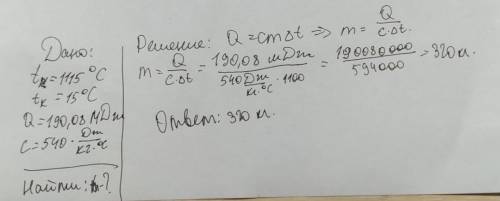 Дано:
tₙ=1115°C
tₖ=15°C
Q=190,08 МДж
c=540 · Дж/кг·°C
Найти: m-?
Решение: Q=cmΔt => m= Q/c·Δt.
m= Q/c·Δt = 190,08 МДж/540 Дж/кг·°C · 1100 = 190080000/594000 =320кг.
Ответ: 320 кг.